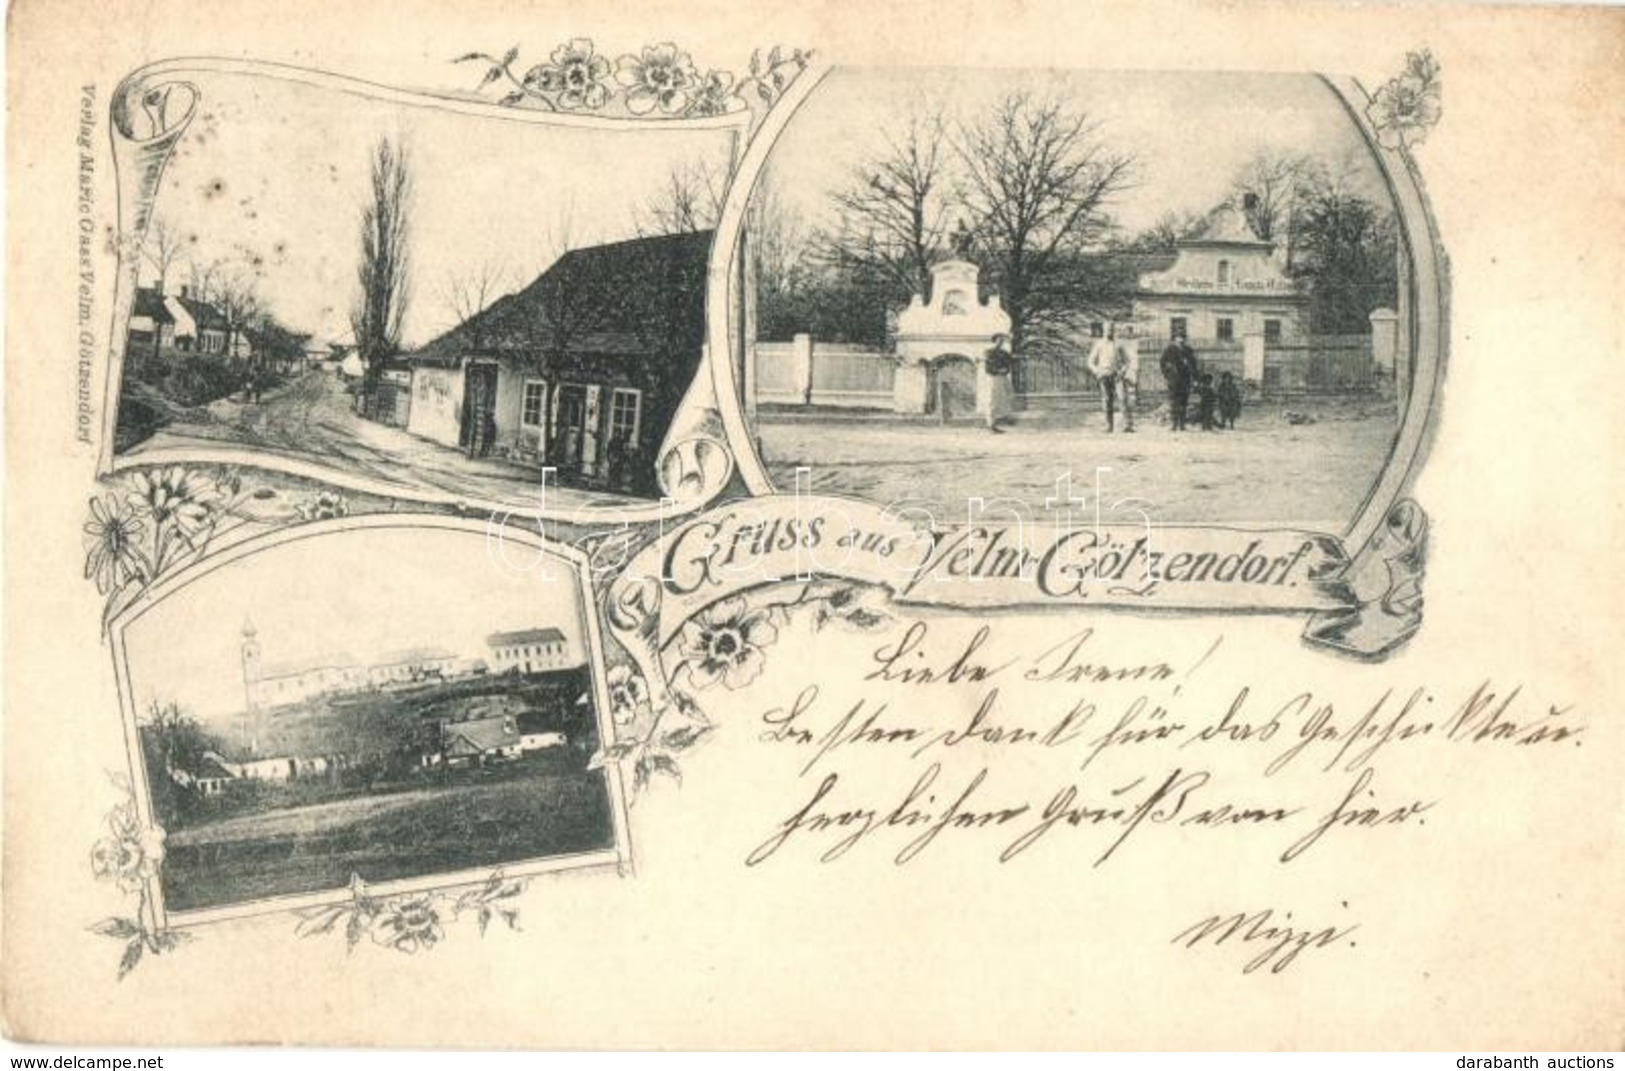 Verlag Marie Gass Velm. Götzendorf
Gruss aus Velm-Götzendorf.
darabanth
Liebe Irene!
Besten Dank für das Geschickte u.
herzlichen Gruß von hier.
Mizzi.
www.delcampe.net
darabanth auctions